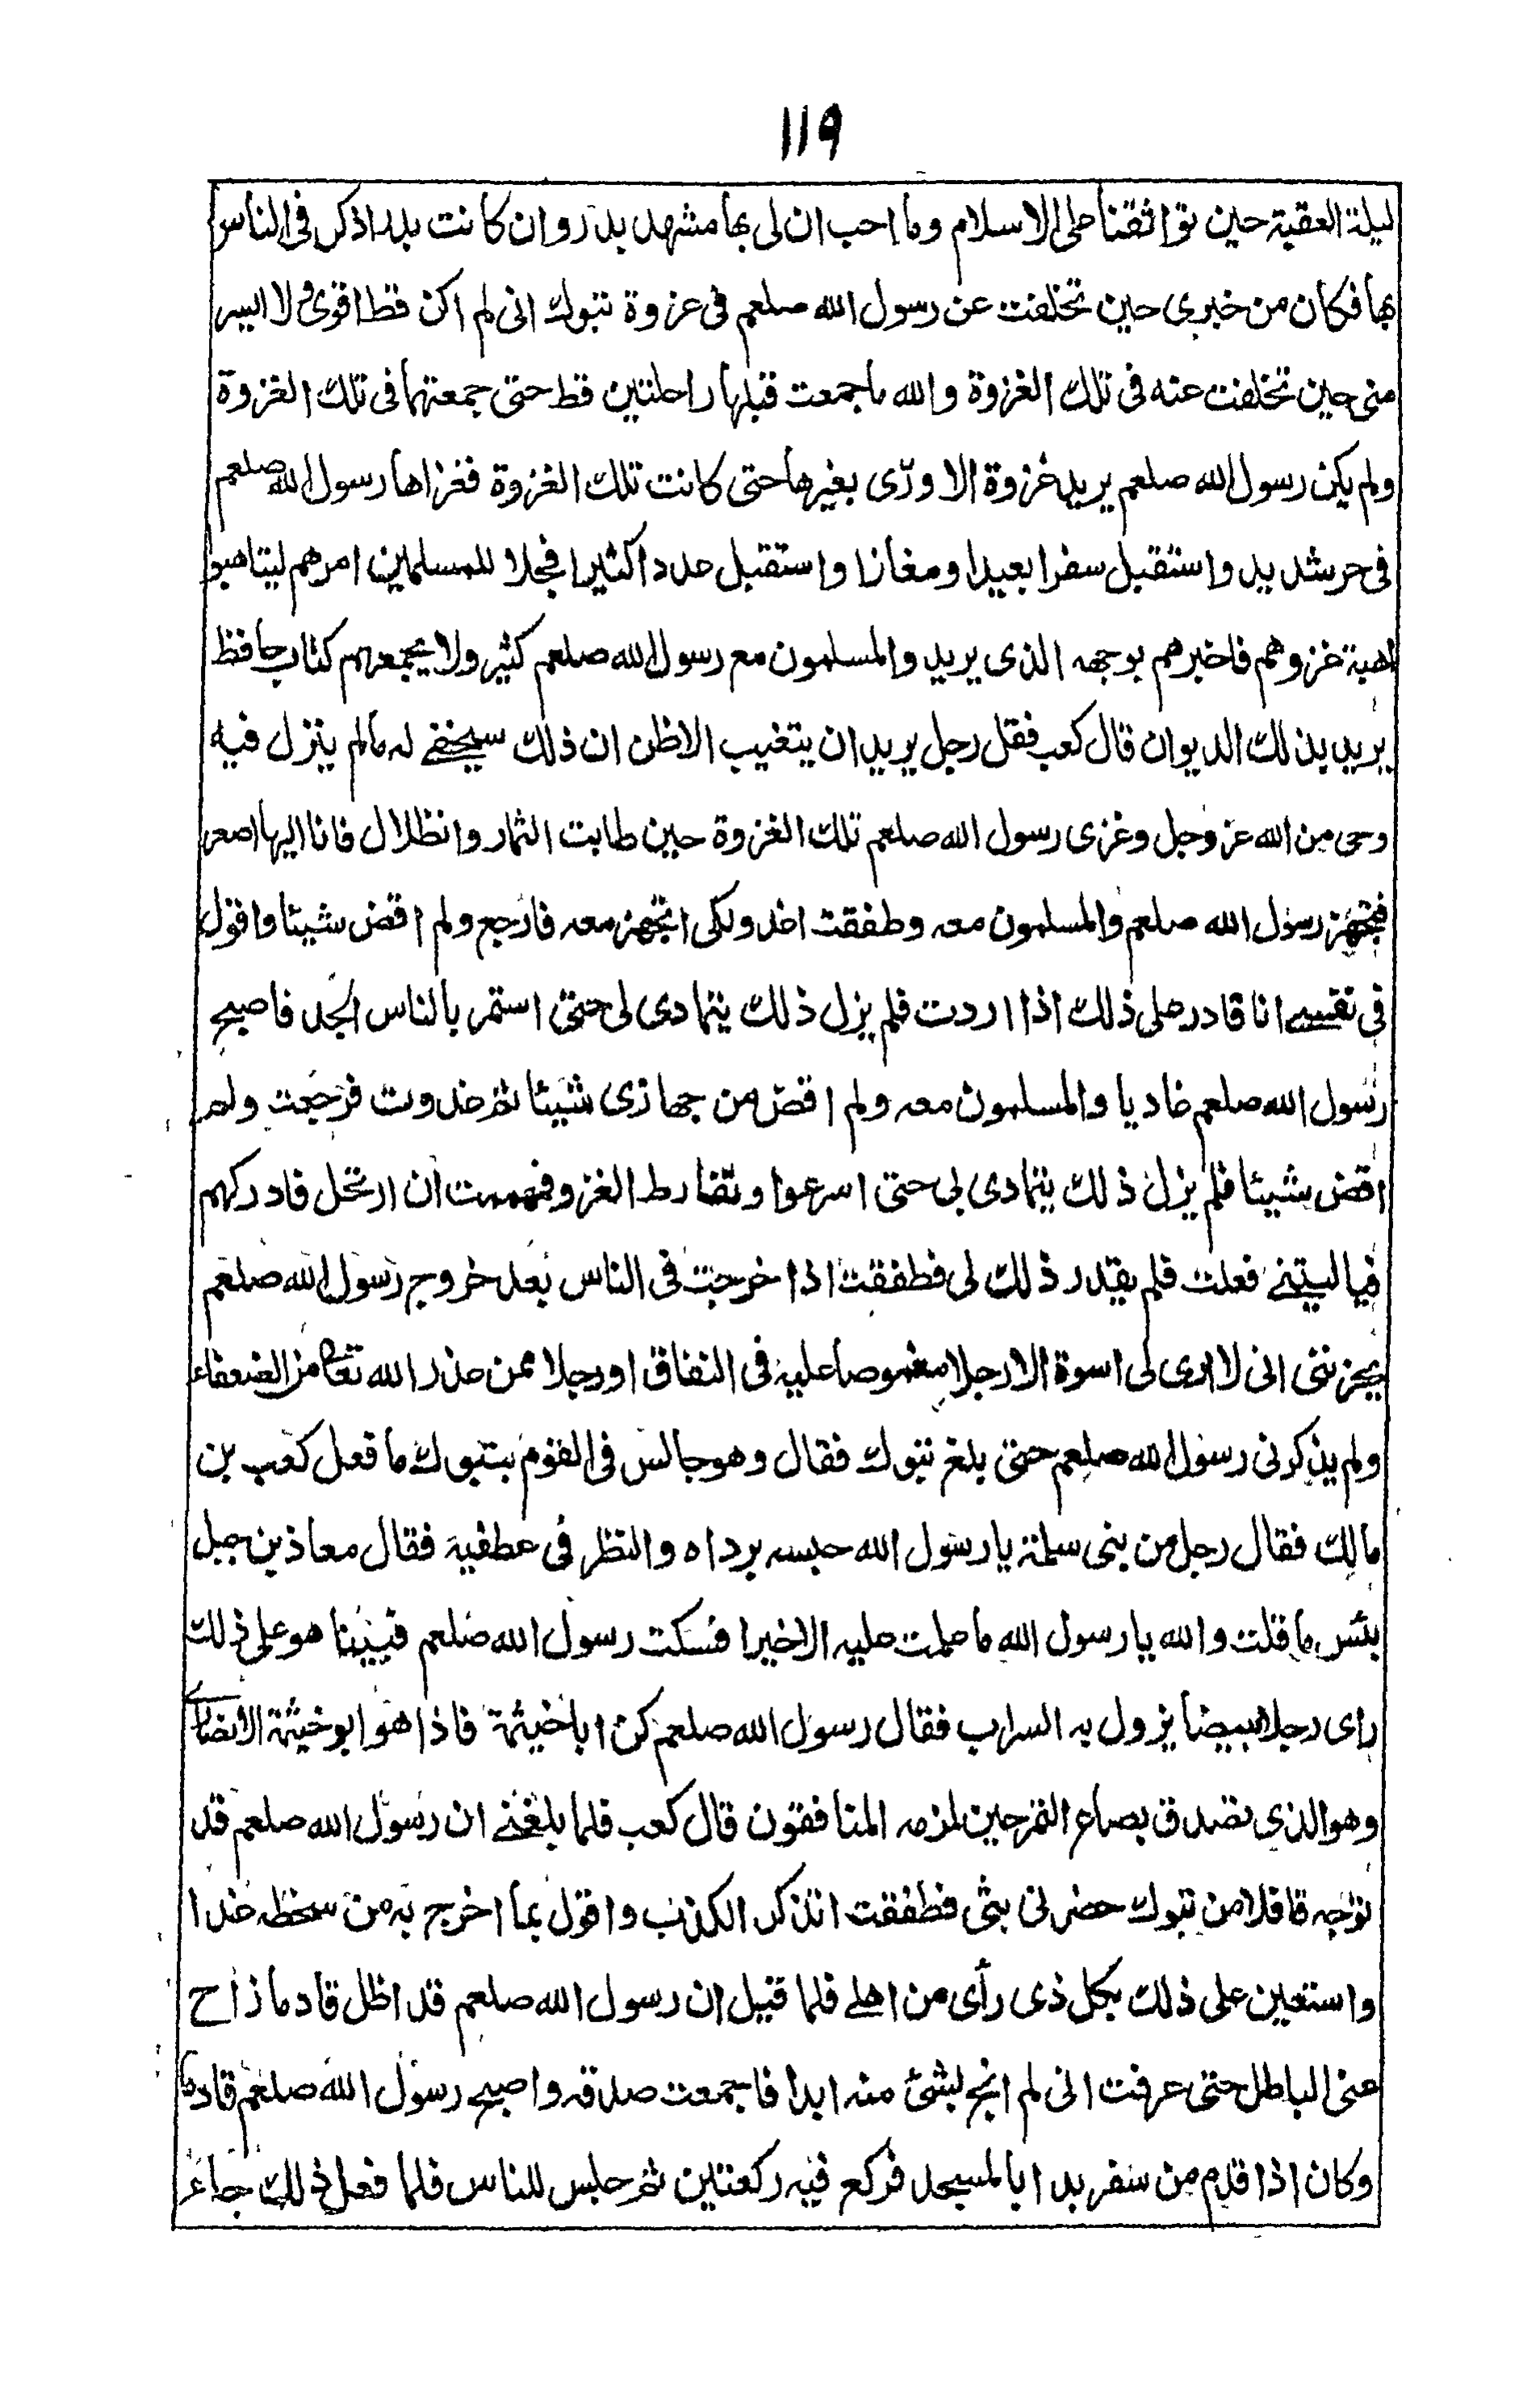 ۱۱۹
ليلة العقبة حين تواثقنا على الاسلام وما احب ان لى بها مشهد بدر وان كانت بدر اذكر فى الناس
بها فكان من خبرى حين تخلفت عن رسول الله صلعم فى غزوة تبوك انى لم اكن قط اقوى ولا ايسر
منى حين تخلفت عنه فى تلك الغزوة والله ما جمعت قبلها راحلتين قط حتى جمعتهما فى تلك الغزوة
ولم يكن رسول الله صلعم يريد غزوة الا ورّى بغيرها حتى كانت تلك الغزوة فغزاها رسول الله صلعم
فى حر شديد واستقبل سفرا بعيدا ومغازا واستقبل عددا كثيرا فجلا للمسلمين امرهم ليتاهبوا
اهبة غزوهم فاخبرهم بوجهه الذى يريد والمسلمون مع رسول الله صلعم كثير ولا يجمعهم كتاب حافظ
يريد بذلك الديوان قال كعب فقل رجل يريد ان يتغيب الا ظن ان ذلك سيخفے له مالم ينزل فيه
وحى من الله عز وجل وغزى رسول الله صلعم تلك الغزوة حين طابت الثمار وانظلال فانا اليها اصعر
فتجهز رسول الله صلعم والمسلمون معه وطفقت اغدو لكى اتجهز معه فارجع ولم اقض شيئا واقول
فى نفسے انا قادر على ذلك اذا اردت فلم يزل ذلك يتمادى لى حتى استمر بالناس الجد فاصبح
رسول الله صلعم غاديا والمسلمون معه ولم اقض من جهازى شيئا ثم غدوت فرجعت ولم
اقض شيئا فلم يزل ذلك يتمادى بى حتى اسرعوا وتفارط الغزو فهممت ان ارتحل فادركهم
فياليتنے فعلت فلم يقدر ذلك لى فطفقت اذا خرجت فى الناس بعد خروج رسول الله صلعم
يحزننى انى لا ارى لى اسوة الا رجلا مغموصا عليه فى النفاق او رجلا ممن عذر الله تعالى من الضعفاء
ولم يذكرنى رسول الله صلعم حتى بلغ تبوك فقال وهو جالس فى القوم بتبوك ما فعل كعب بن
مالك فقال رجل من بنى سلمة يا رسول الله حبسه برداه والنظر فى عطفية فقال معاذ بن جبل
بئس ما قلت والله يا رسول الله ما علمت عليه الا خيرا فسكت رسول الله صلعم فبينا هو على ذلك
راى رجلا مبيضا يزول به السراب فقال رسول الله صلعم كن ابا خيثمة فاذا هو ابو خيثمة الانصارے
وهو الذى تصدق بصاع التمر حين لمزه المنافقون قال كعب فلما بلغنے ان رسول الله صلعم قد
توجه قافلا من تبوك حضرنى بثى فطفقت اتذكر الكذب واقول بما اخرج به من سخطه غدا
واستعين على ذلك بكل ذى رأى من اهلے فلما قيل ان رسول الله صلعم قد اظل قادما زاح
عنى الباطل حتى عرفت انى لم انج بشئ منه ابدا فاجمعت صدقه واصبح رسول الله صلعم قادما
وكان اذا قدم من سفر بدا بالمسجد فركع فيه ركعتين ثم جلس للناس فلما فعل ذلك جاء